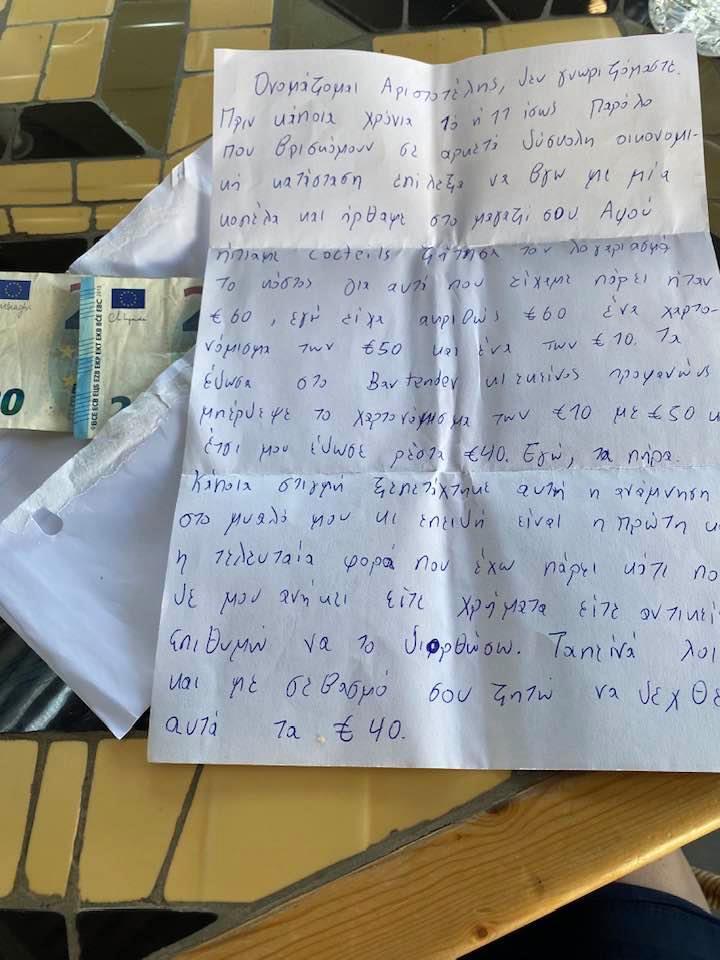 Ονομάζομαι Αριστοτέλης, δεν γνωριζόμαστε.
Πριν κάποια χρόνια 10 ή 11 ίσως Παρόλο
που βρισκόμουν σε αρκετά δύσκολη οικονομι-
κή κατάσταση επίλεξα να βγω με μία
κοπέλα και ήρθαμε στο μαγαζί σου. Αφού
ήπιαμε cocteils ζήτησα τον λογαριασμό
το κόστος για αυτά που είχαμε πάρει ήταν
€60, εγώ είχα ακριβώς €60 ένα χαρτο-
νόμισμα των €50 και ένα των €10. Τα
έδωσα στο Bartender κι εκείνος προφανώς
μπέρδεψε το χαρτονόμισμα των €10 με €50 κ
έτσι μου έδωσε ρέστα €40. Εγώ, τα πήρα.
Κάποια στιγμή ξεπετάχτηκε αυτή η ανάμνηση
στο μυαλό μου κι επειδή είναι η πρώτη κ
η τελευταία φορά που έχω πάρει κάτι πο
δε μου ανήκει είτε χρήματα είτε αντικεί
επιθυμώ να το διορθώσω. Ταπεινά λοι
και με σεβασμό σου ζητώ να δεχθε
αυτά τα €40.
BCE ECB EZB EKP EKT EKB BĊE EBC